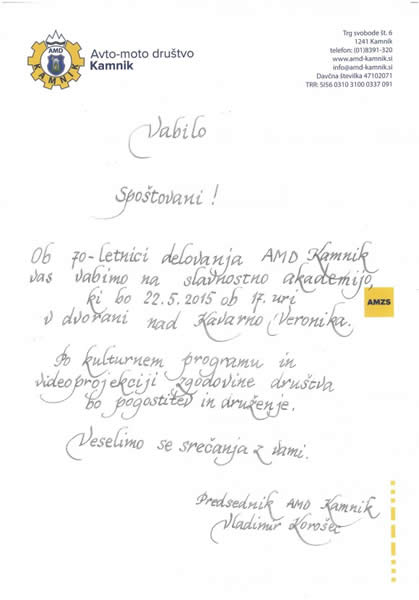 AMD
KAMNIK
Avto-moto društvo
Kamnik
Trg svobode št. 6
1241 Kamnik
telefon: (01)8391-320
www.amd-kamnik.si
info@amd-kamnik.si
Davčna številka 47102071
TRR: SI56 0310 3100 0337 091
Vabilo
Spoštovani!
Ob 70-letnici delovanja AMD Kamnik
vas vabimo na slavnostno akademijo,
ki bo 22.5.2015 ob 17. uri
v dvorani nad Kavarno Veronika.
AMZS
Po kulturnem programu in
videoprojekciji zgodovine društva
bo pogostitev in druženje.
Veselimo se srečanja z vami.
Predsednik AMD Kamnik
Vladimir Korošec